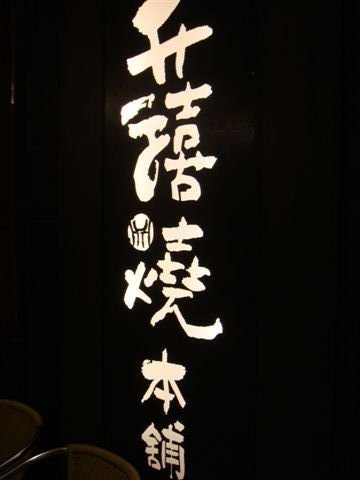 升禧燒本舖